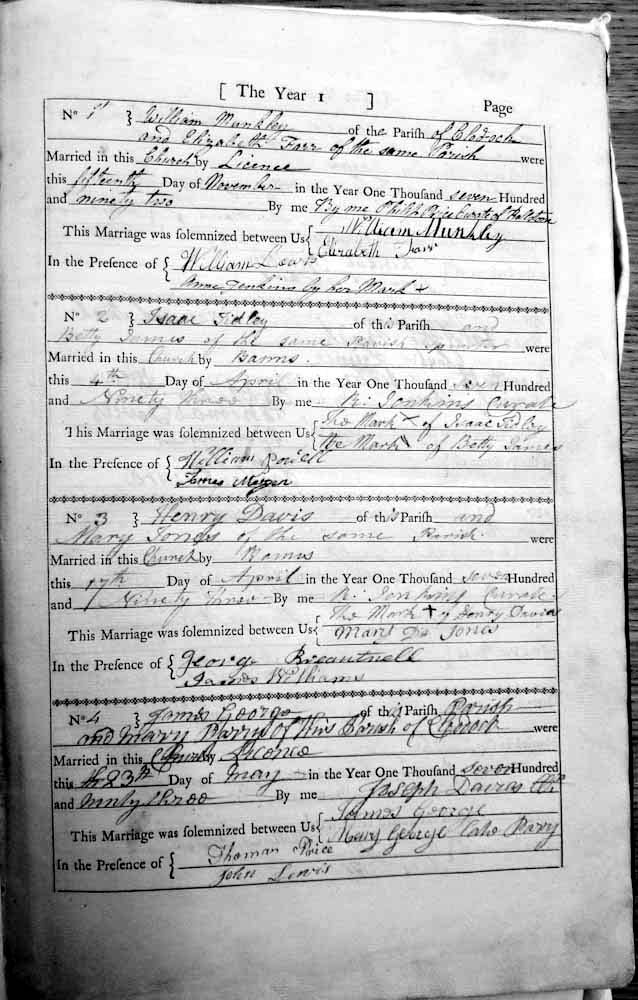 [ The Year 1 ] Page
No 1st } William Munkley of the Parish of Clodock
and Elizabeth Farr of the same Parish were
Married in this Church by Licence
this fifteenth Day of November in the Year One Thousand seven Hundred
and ninety two By me By me Philip Price Curate of
This Marriage was solemnized between Us { William Munkley
Elizabeth Farr
In the Presence of { William Lewis
Anne Jenkins by her Mark +
No 2 } Isaac Fidley of this Parish and
Betty James of the same Parish were
Married in this Church by Banns.
this 4th Day of April in the Year One Thousand seven Hundred
and Ninety three By me R: Jenkins Curate
This Marriage was solemnized between Us { The Mark X of Isaac Fidley
the Mark X of Betty James
In the Presence of { William Powell
James
No 3 } Henry Davis of this Parish and
Mary Jones of the same Parish. were
Married in this Church by Banns
this 17th Day of April in the Year One Thousand seven Hundred
and Ninety three By me R: Jenkins Curate
This Marriage was solemnized between Us { The Mark + of Henry Davies
Jones
In the Presence of { George
James Williams
No 4 } James George of this Parish Parish
and Mary Parry of this Parish of Clodock were
Married in this Church by Licence
this 23th Day of May in the Year One Thousand seven Hundred
and ninty three By me Joseph Davies
This Marriage was solemnized between Us { James George
Mary George late Parry
In the Presence of { Thomas Price
John Lewis